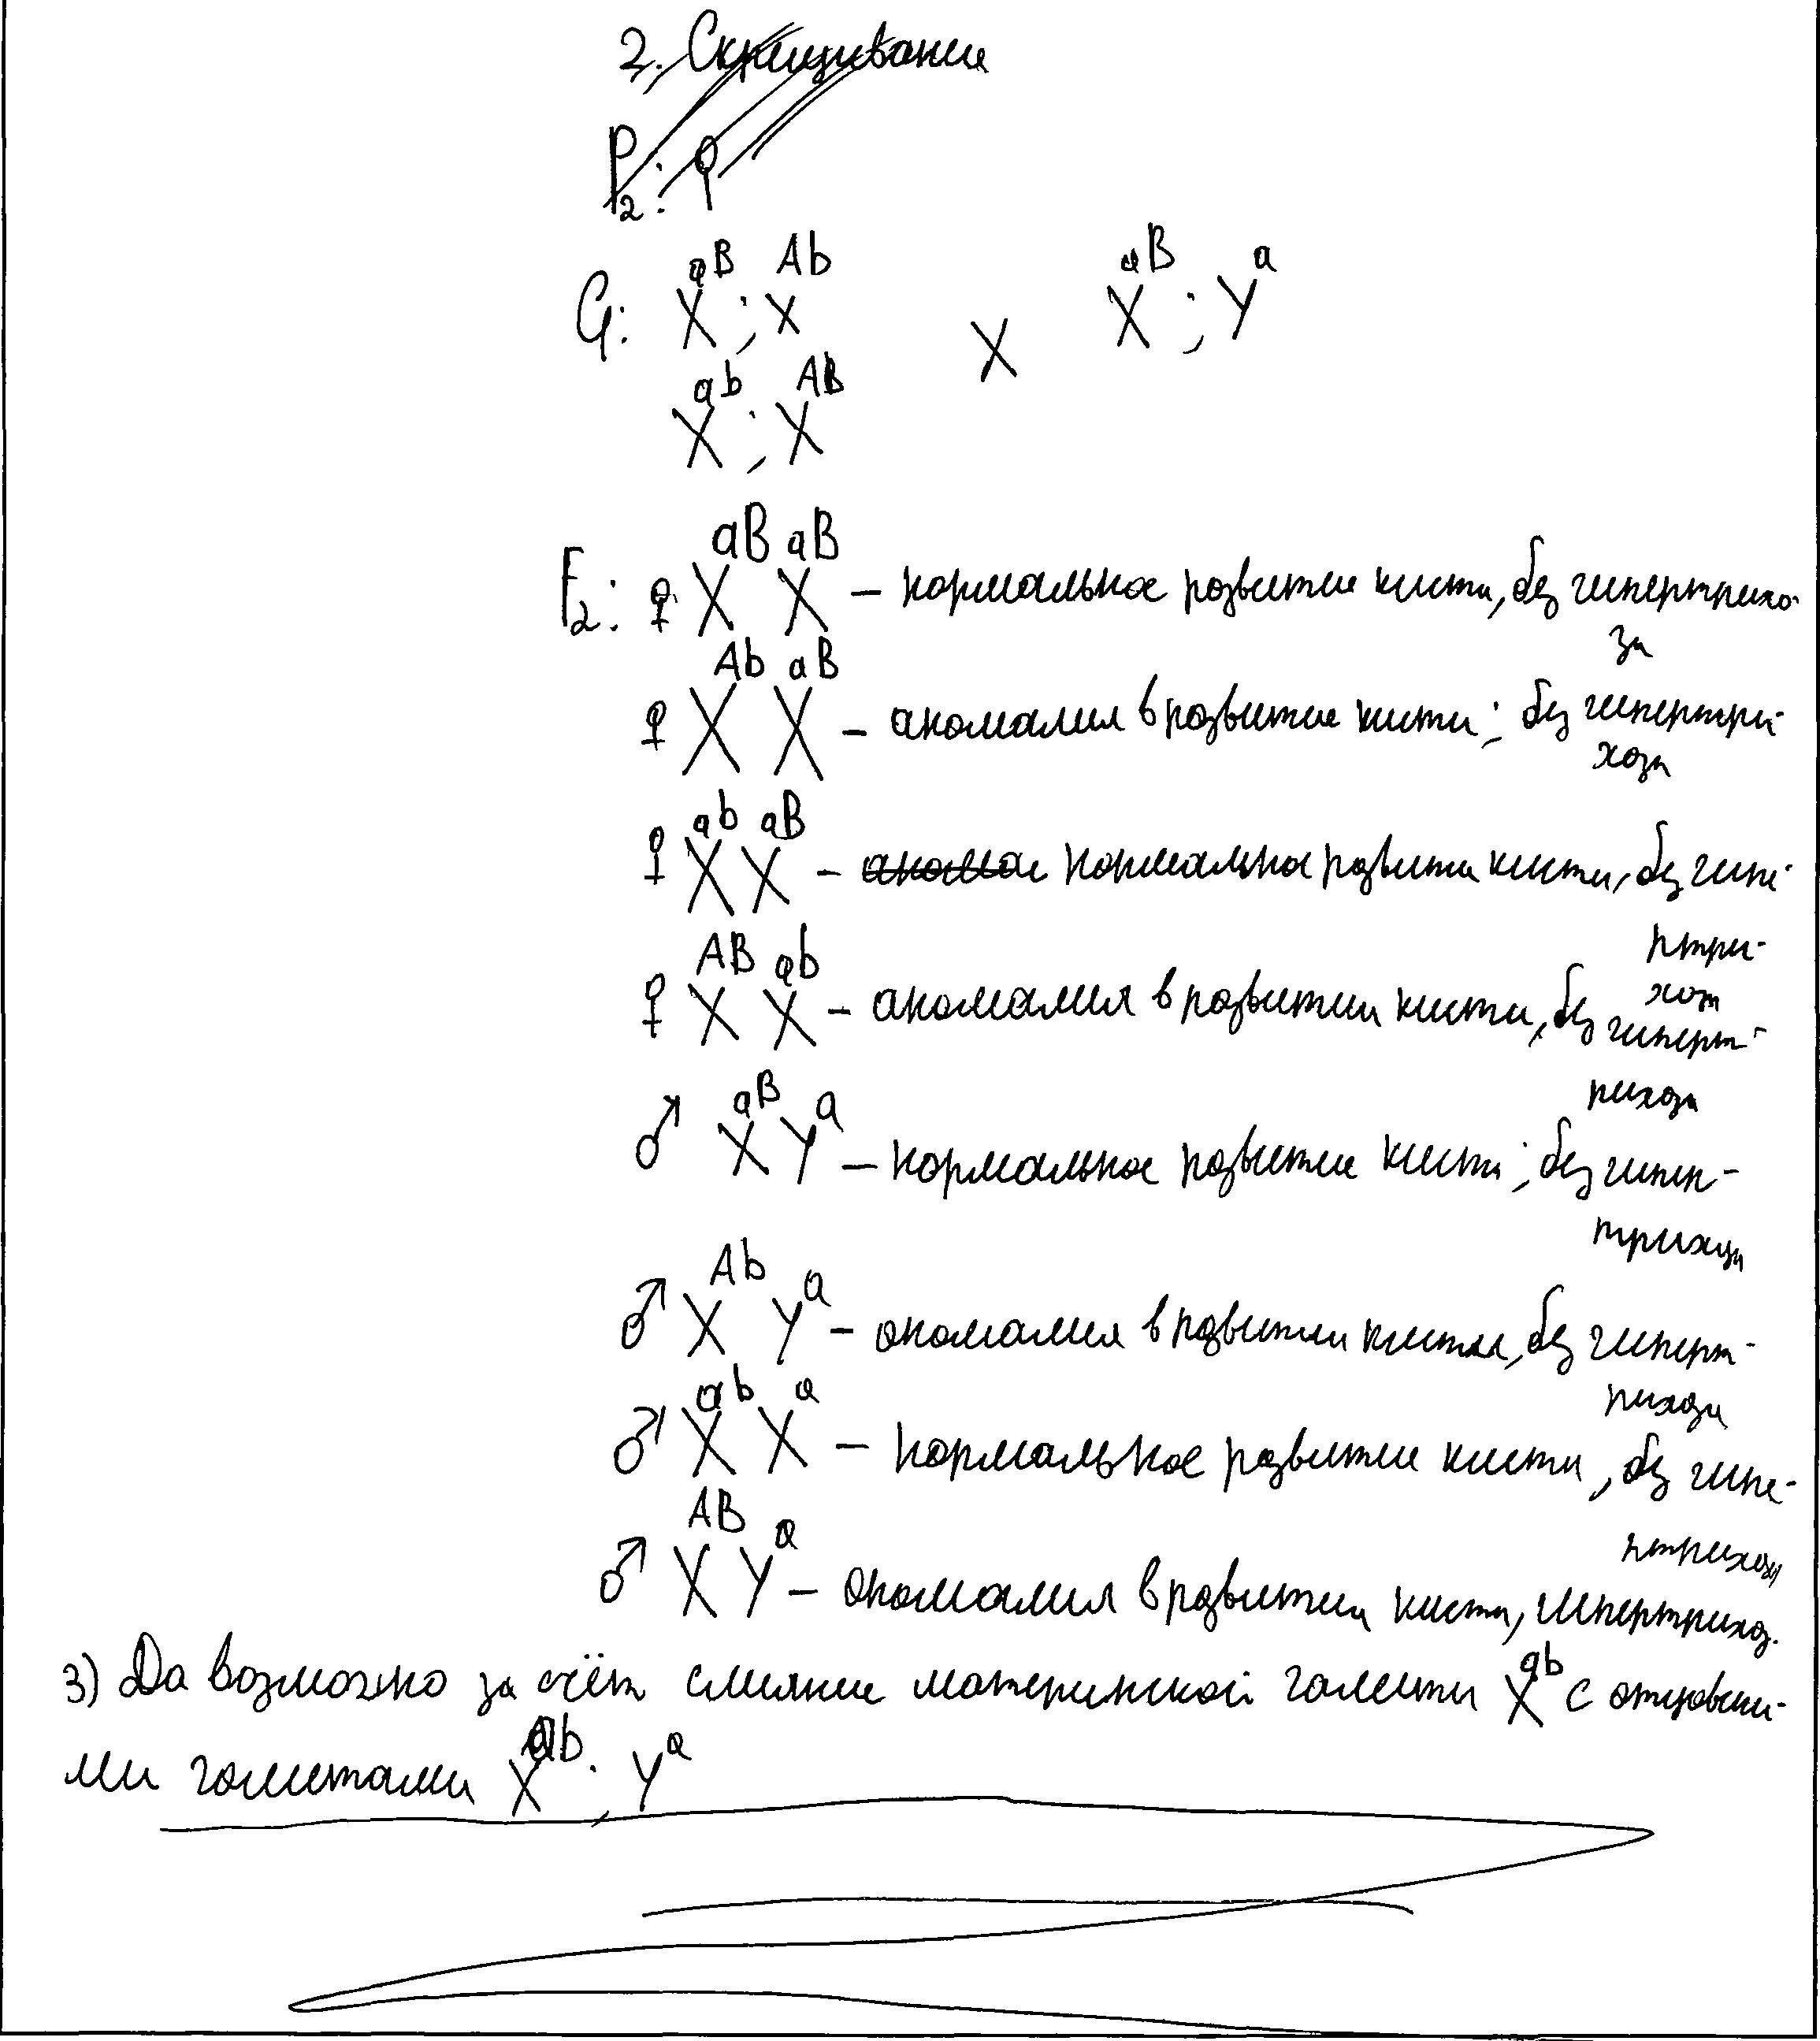 2. Скрещивание
P₂: ♀
G: X^aB ; X^Ab X X^aB ; Y^a
X^ab ; X^AB
F₂: ♀ X^aB X^aB – нормальное развитие кисти, без гипертрихо-
за
♀ X^Ab X^aB – аномалия в развитие кисти; без гипертри-
хоза
♀ X^ab X^aB – аномал нормальное развитие кисти, без гипе-
ртри-
хоза
♀ X^AB X^ab – аномалия в развитии кисти, без гиперт-
рихоза
♂ X^aB Y^a – нормальное развитие кисти; без гипер-
трихоза
♂ X^Ab Y^a – аномалия в развитии кисти, без гиперт-
рихоза
♂ X^ab X^a – нормальное развитие кисти, без гипе-
ртрихоза
♂ X^AB Y^a – аномалия в развитии кисти, гипертрихоз.
3) Да возможно за счёт слияние материнской гаметы X^ab с отцовски-
ми гаметами X^ab ; Y^a